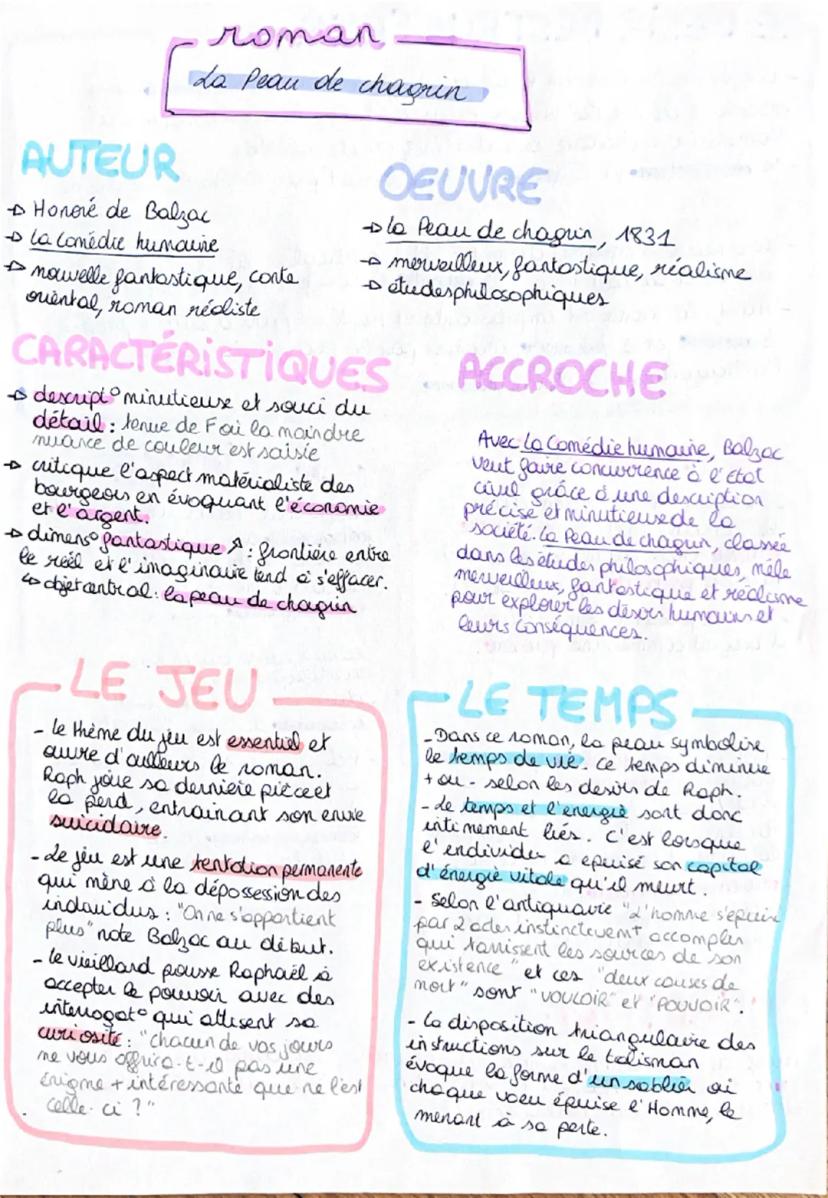 roman
La Peau de chagrin
AUTEUR
→ Honoré de Balzac
→ La Comédie humaine
→ nouvelle fantastique, conte
oriental, roman réaliste
OEUVRE
→ La Peau de chagrin, 1831
→ merveilleux, fantastique, réalisme
→ études philosophiques
CARACTÉRISTIQUES
→ descript° minutieuse et souci du
détail : tenue de F où la moindre
nuance de couleur est saisie
→ critique l'aspect matérialiste des
bourgeois en évoquant l'économie
et l'argent.
→ dimens° fantastique : frontière entre
le réel et l'imaginaire tend à s'effacer.
↳ objet central : la peau de chagrin
ACCROCHE
Avec La Comédie humaine, Balzac
veut faire concurrence à l'état
civil grâce à une description
précise et minutieuse de la
société. La Peau de chagrin, classée
dans les études philosophiques, mêle
merveilleux, fantastique et réalisme
pour explorer les désirs humains et
leurs conséquences.
LE JEU
- le thème du jeu est essentiel et
ouvre d'ailleurs le roman.
Raph joue sa dernière pièce et
la perd, entrainant son envie
suicidaire.
- Le jeu est une tentation permanente
qui mène à la dépossession des
individus : "On ne s'appartient
plus" note Balzac au début.
- le vieillard pousse Raphaël à
accepter le pouvoir avec des
interrogat° qui attisent sa
curiosité : "chacun de vos jours
ne vous offrira-t-il pas une
énigme + intéressante que ne l'est
celle-ci ?"
LE TEMPS
- Dans ce roman, la peau symbolise
le temps de vie. Ce temps diminue
+ ou - selon les désirs de Raph.
- Le temps et l'énergie sont donc
intimement liés. C'est lorsque
l'individu a épuisé son capital
d'énergie vitale qu'il meurt.
- Selon l'antiquaire "L'homme s'épuise
par 2 actes instinctevemt accomplis
qui tarissent les sources de son
existence" et ces "deux causes de
mort" sont "VOULOIR" et "POUVOIR".
- La disposition triangulaire des
instructions sur le talisman
évoque la forme d'un sablier où
chaque voeu épuise l'Homme, le
menant à sa perte.